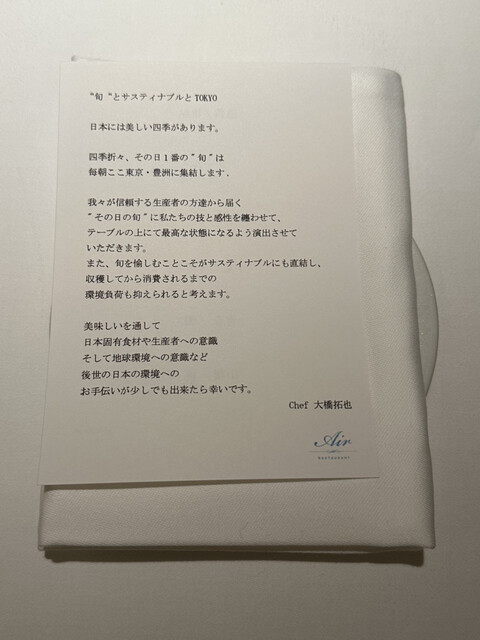 〝旬〝とサスティナブルとTOKYO
日本には美しい四季があります。
四季折々、その日１番の〝旬〝は
毎朝ここ東京・豊洲に集結します.
我々が信頼する生産者の方達から届く
〝その日の旬〝に私たちの技と感性を纏わせて、
テーブルの上にて最高な状態になるよう演出させて
いただきます。
また、旬を愉しむことこそがサスティナブルにも直結し、
収穫してから消費されるまでの
環境負荷も抑えられると考えます。
美味しいを通して
日本固有食材や生産者への意識
そして地球環境への意識など
後世の日本の環境への
お手伝いが少しでも出来たら幸いです。
Chef 大橋拓也
Air
RESTAURANT